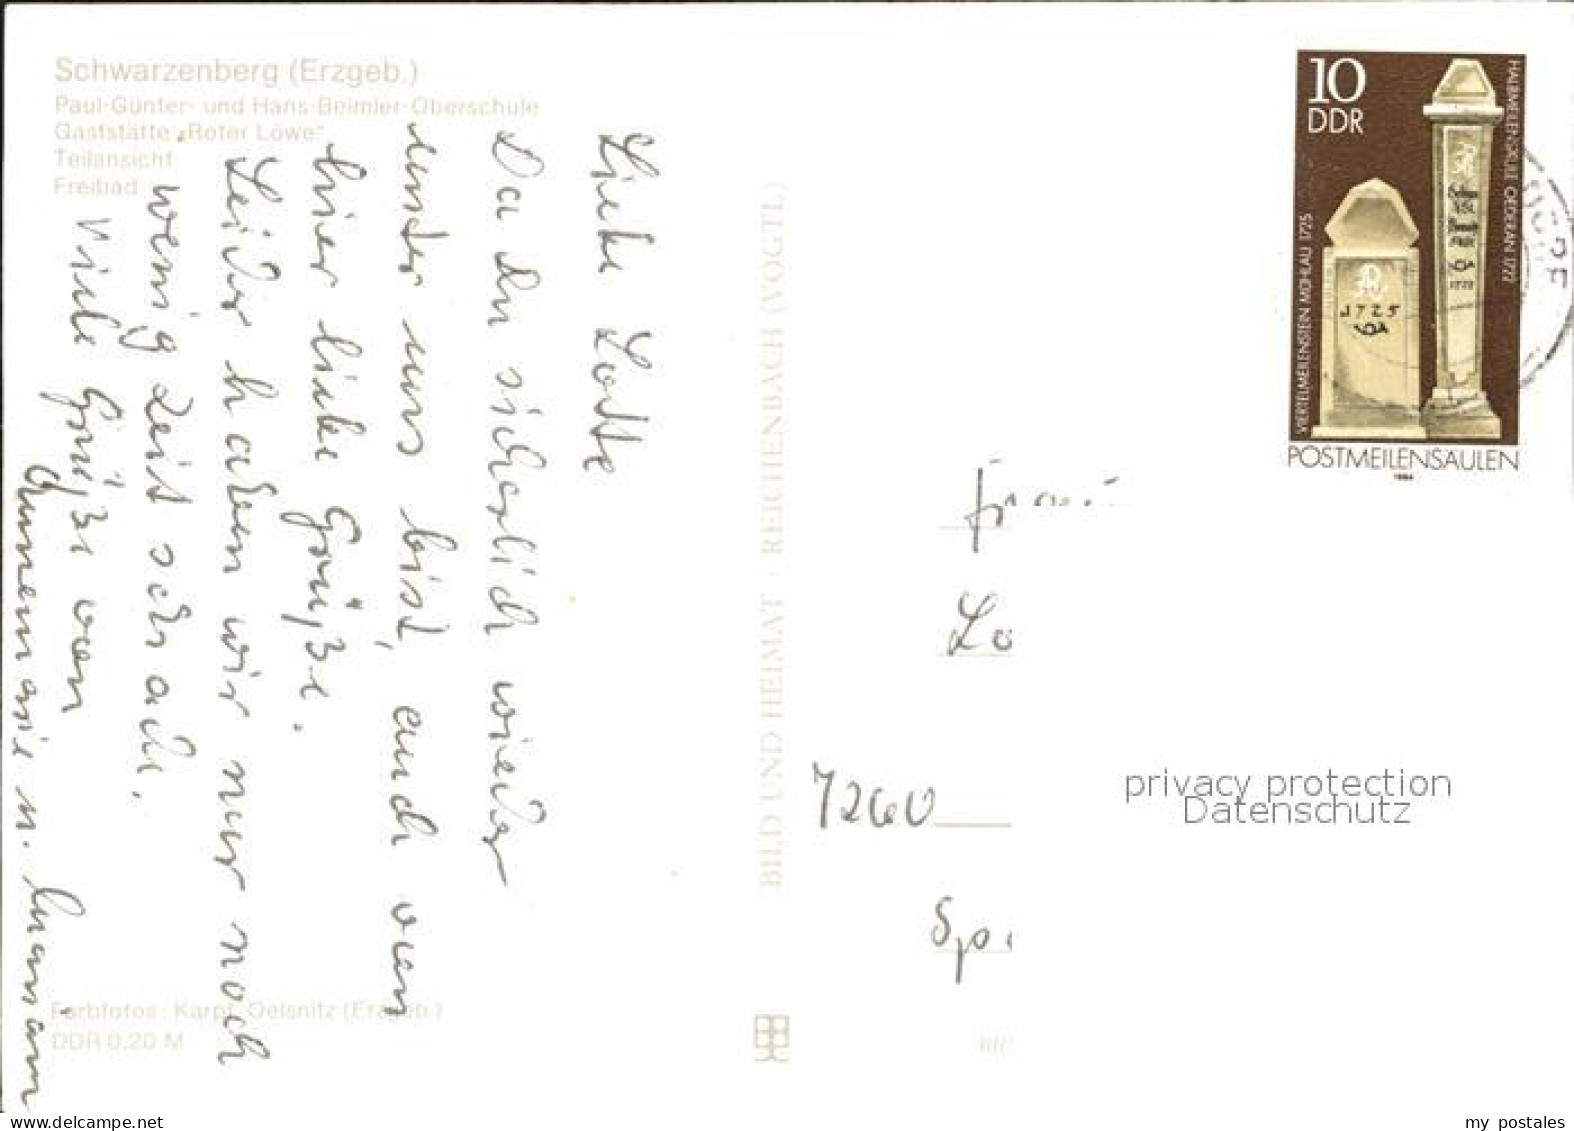 Schwarzenberg (Erzgeb.)
Paul-Günter- und Hans-Beimler-Oberschule
Gaststätte „Roter Löwe“
Teilansicht
Freibad
Liebe Lotte
Da Du sicherlich wieder
unter uns bist, auch von
hier liebe Grüße.
Leider haben wir nur noch
wenig Zeit
Viele Grüße von
Annemarie u.
Farbfotos: Karpf, Oelsnitz (Erzgeb.)
DDR 0,20 M
BILD UND HEIMAT · REICHENBACH (VOGTL)
10
DDR
VIERTELMEILENSTEIN MÜHLAU 1725
HALBMEILENSÄULE OEDERAN 1722
1725
1722
POSTMEILENSÄULEN
1984
7260
privacy protection
Datenschutz
www.delcampe.net
my_postales